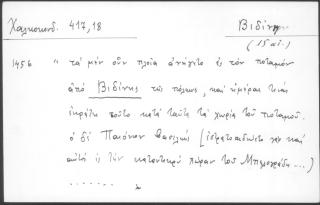 Χαλκοκονδ. 417,18
Βιδίνη
(15 αἰ.)
1456 " τὰ μὲν οὖν πλοῖα ἀνήγετο ἐς τὸν ποταμὸν
ἀπὸ Βιδίνης τῆς πόλεως, καὶ ἡμέρας τινὰς
ἐπράττετο τοῦτο κατὰ ταῦτα τὰ χωρία τοῦ ποταμοῦ.
ὁ δὲ Παιόνων βασιλεὺς [ἐστρατοπεδεύετο γὰρ καὶ
αὐτὸς ἐς τὴν καταντικρὺ χώραν τοῦ Μπελογράδη ...)
.......